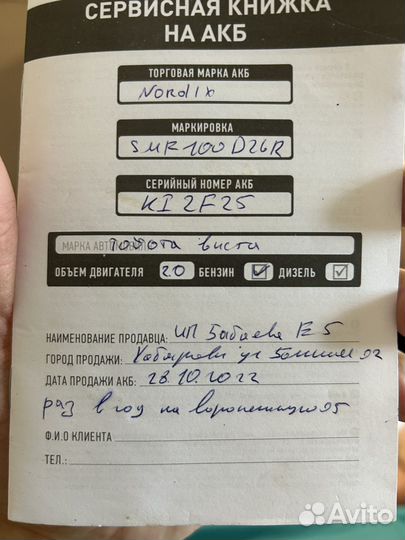 СЕРВИСНАЯ КНИЖКА
НА АКБ
ТОРГОВАЯ МАРКА АКБ
Nordix
МАРКИРОВКА
SMF100D26R
СЕРИЙНЫЙ НОМЕР АКБ
KI2F25
МАРКА Тойота виста
ОБЪЕМ ДВИГАТЕЛЯ 2.0 БЕНЗИН ДИЗЕЛЬ
НАИМЕНОВАНИЕ ПРОДАВЦА: ИП Бабаева
ГОРОД ПРОДАЖИ: ул
ДАТА ПРОДАЖИ АКБ: 28.10.2022
раз в год на
Ф.И.О КЛИЕНТА
ТЕЛ.:
Avito